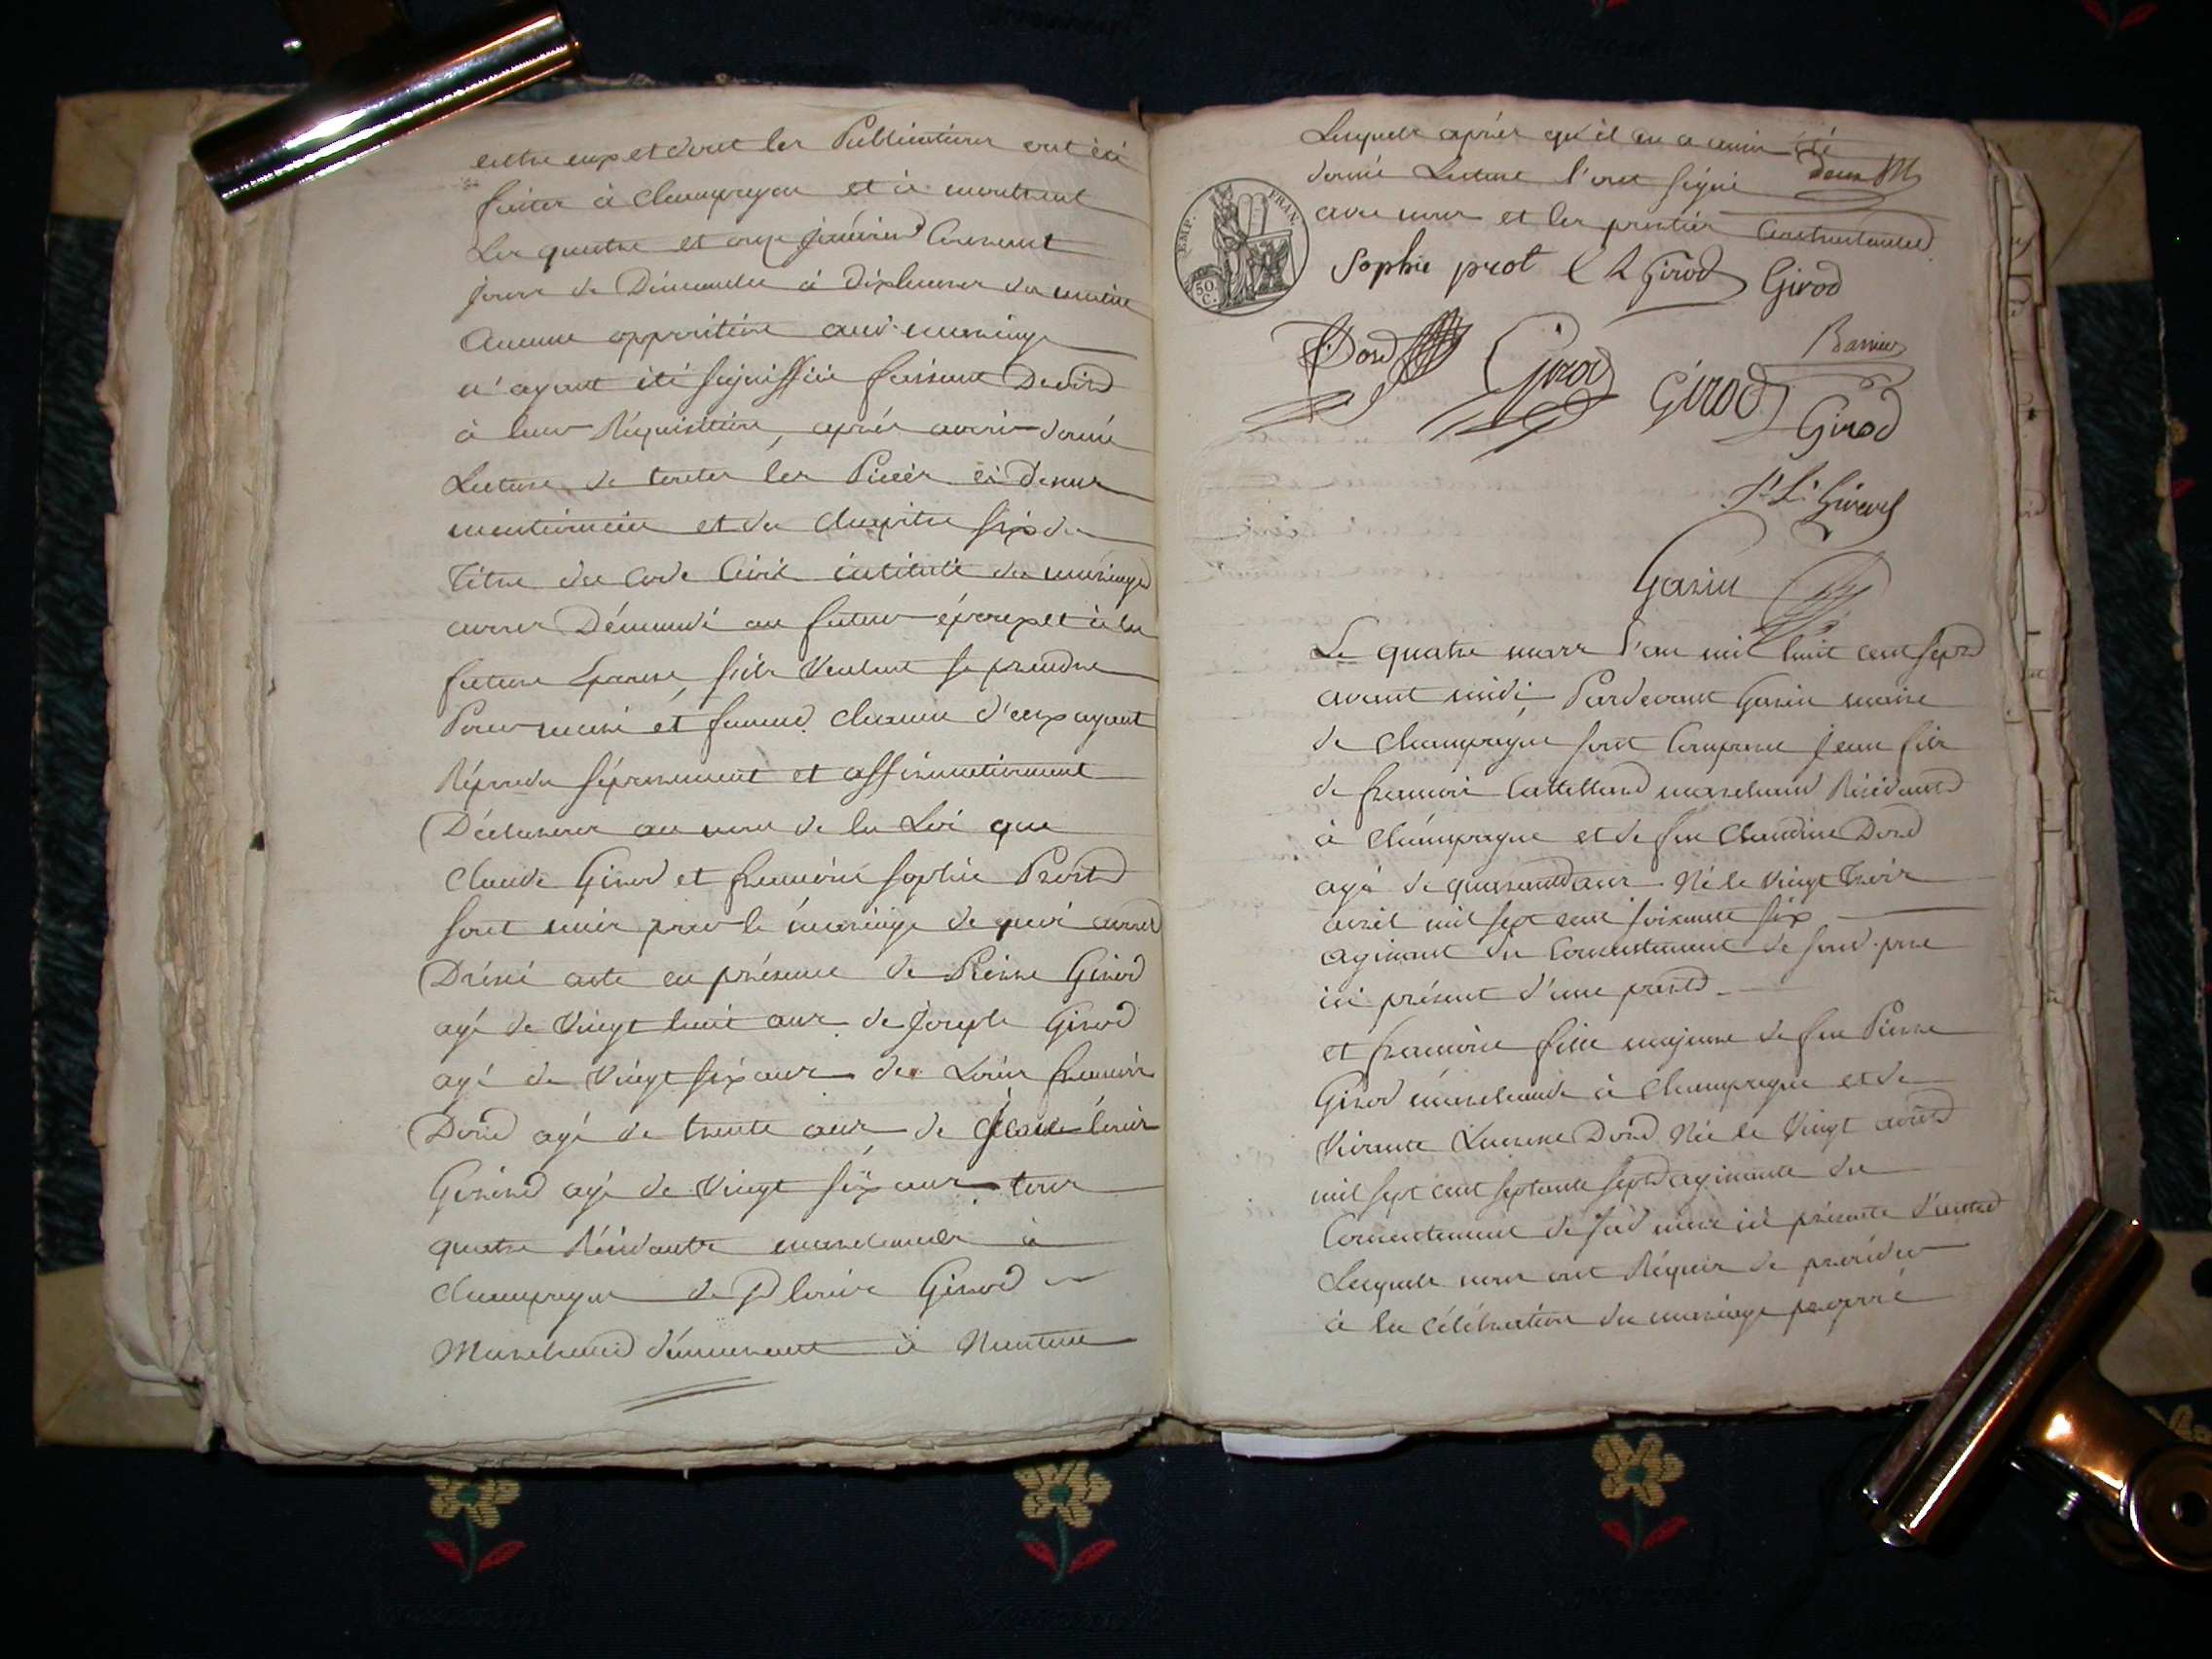 entre eux et dont les Publications ont été
faites à Champagne et à
les quatre et onze janvier Courant
jours de Dimanche à d'ixheures du matin
Aucune opposition aud. mariage
n'ayant été signiffiée faisant Droit
à leur Réquisition, après avoir donné
Lecture de toutes les Pièces ci Dessus
mentionnées et du Chapitre six du
Titre du Code Civil intitulé du mariage
avons Démandé au futur époux et à la
future Epouse, s'ils Veulent se prendre
Pour mari et femme. Chacun d'eux ayant
Répondu séparement et affirmativement
Déclarons au nom de la Loi que
Claude Girod et françoise Sophie Prost
sont unis par le mariage de quoi avons
Dréssé acte en présence de Pierre Girod
agé de Vingt huit ans de Joseph Girod
agé de Vingt six ans de Louis françois
Dord agé de trente ans de Louis
Girod agé de Vingt six ans tous
quatre Résidants marchands à
Champagne de Louis Girod
Marchand démeurant à Nantua
Lesquels après qu'il en a aussi été
donné Lecture l'ont signé
avec nous et les parties Contractantes
EMP. FRAN.
50 C.
Sophie prot C Girod Girod
Dord Girod Girod
Girod
Girod
Garin
Le quatre mars l'an mil huit cent sept
avant midi Pardevant Garin maire
de Champagne sont Comparus Jean fils
de françois marchand Résidant
à Champagne et de feu Claudine Dord
agé de quarante ans Né le Vingt Trois
avril mil sept cent soixante six
agissant du Consentement de sond. père
ici présent d'une part
et françoise fille majeure de feu Pierre
Girod marchande à Champagne et de
Vivante Dord Née le Vingt août
mil sept cent septante sept agissante du
Consentement de sad. mère ici présente d'autre
Lesquels nous ont Réquis de procéder
à la célébration du mariage projetté